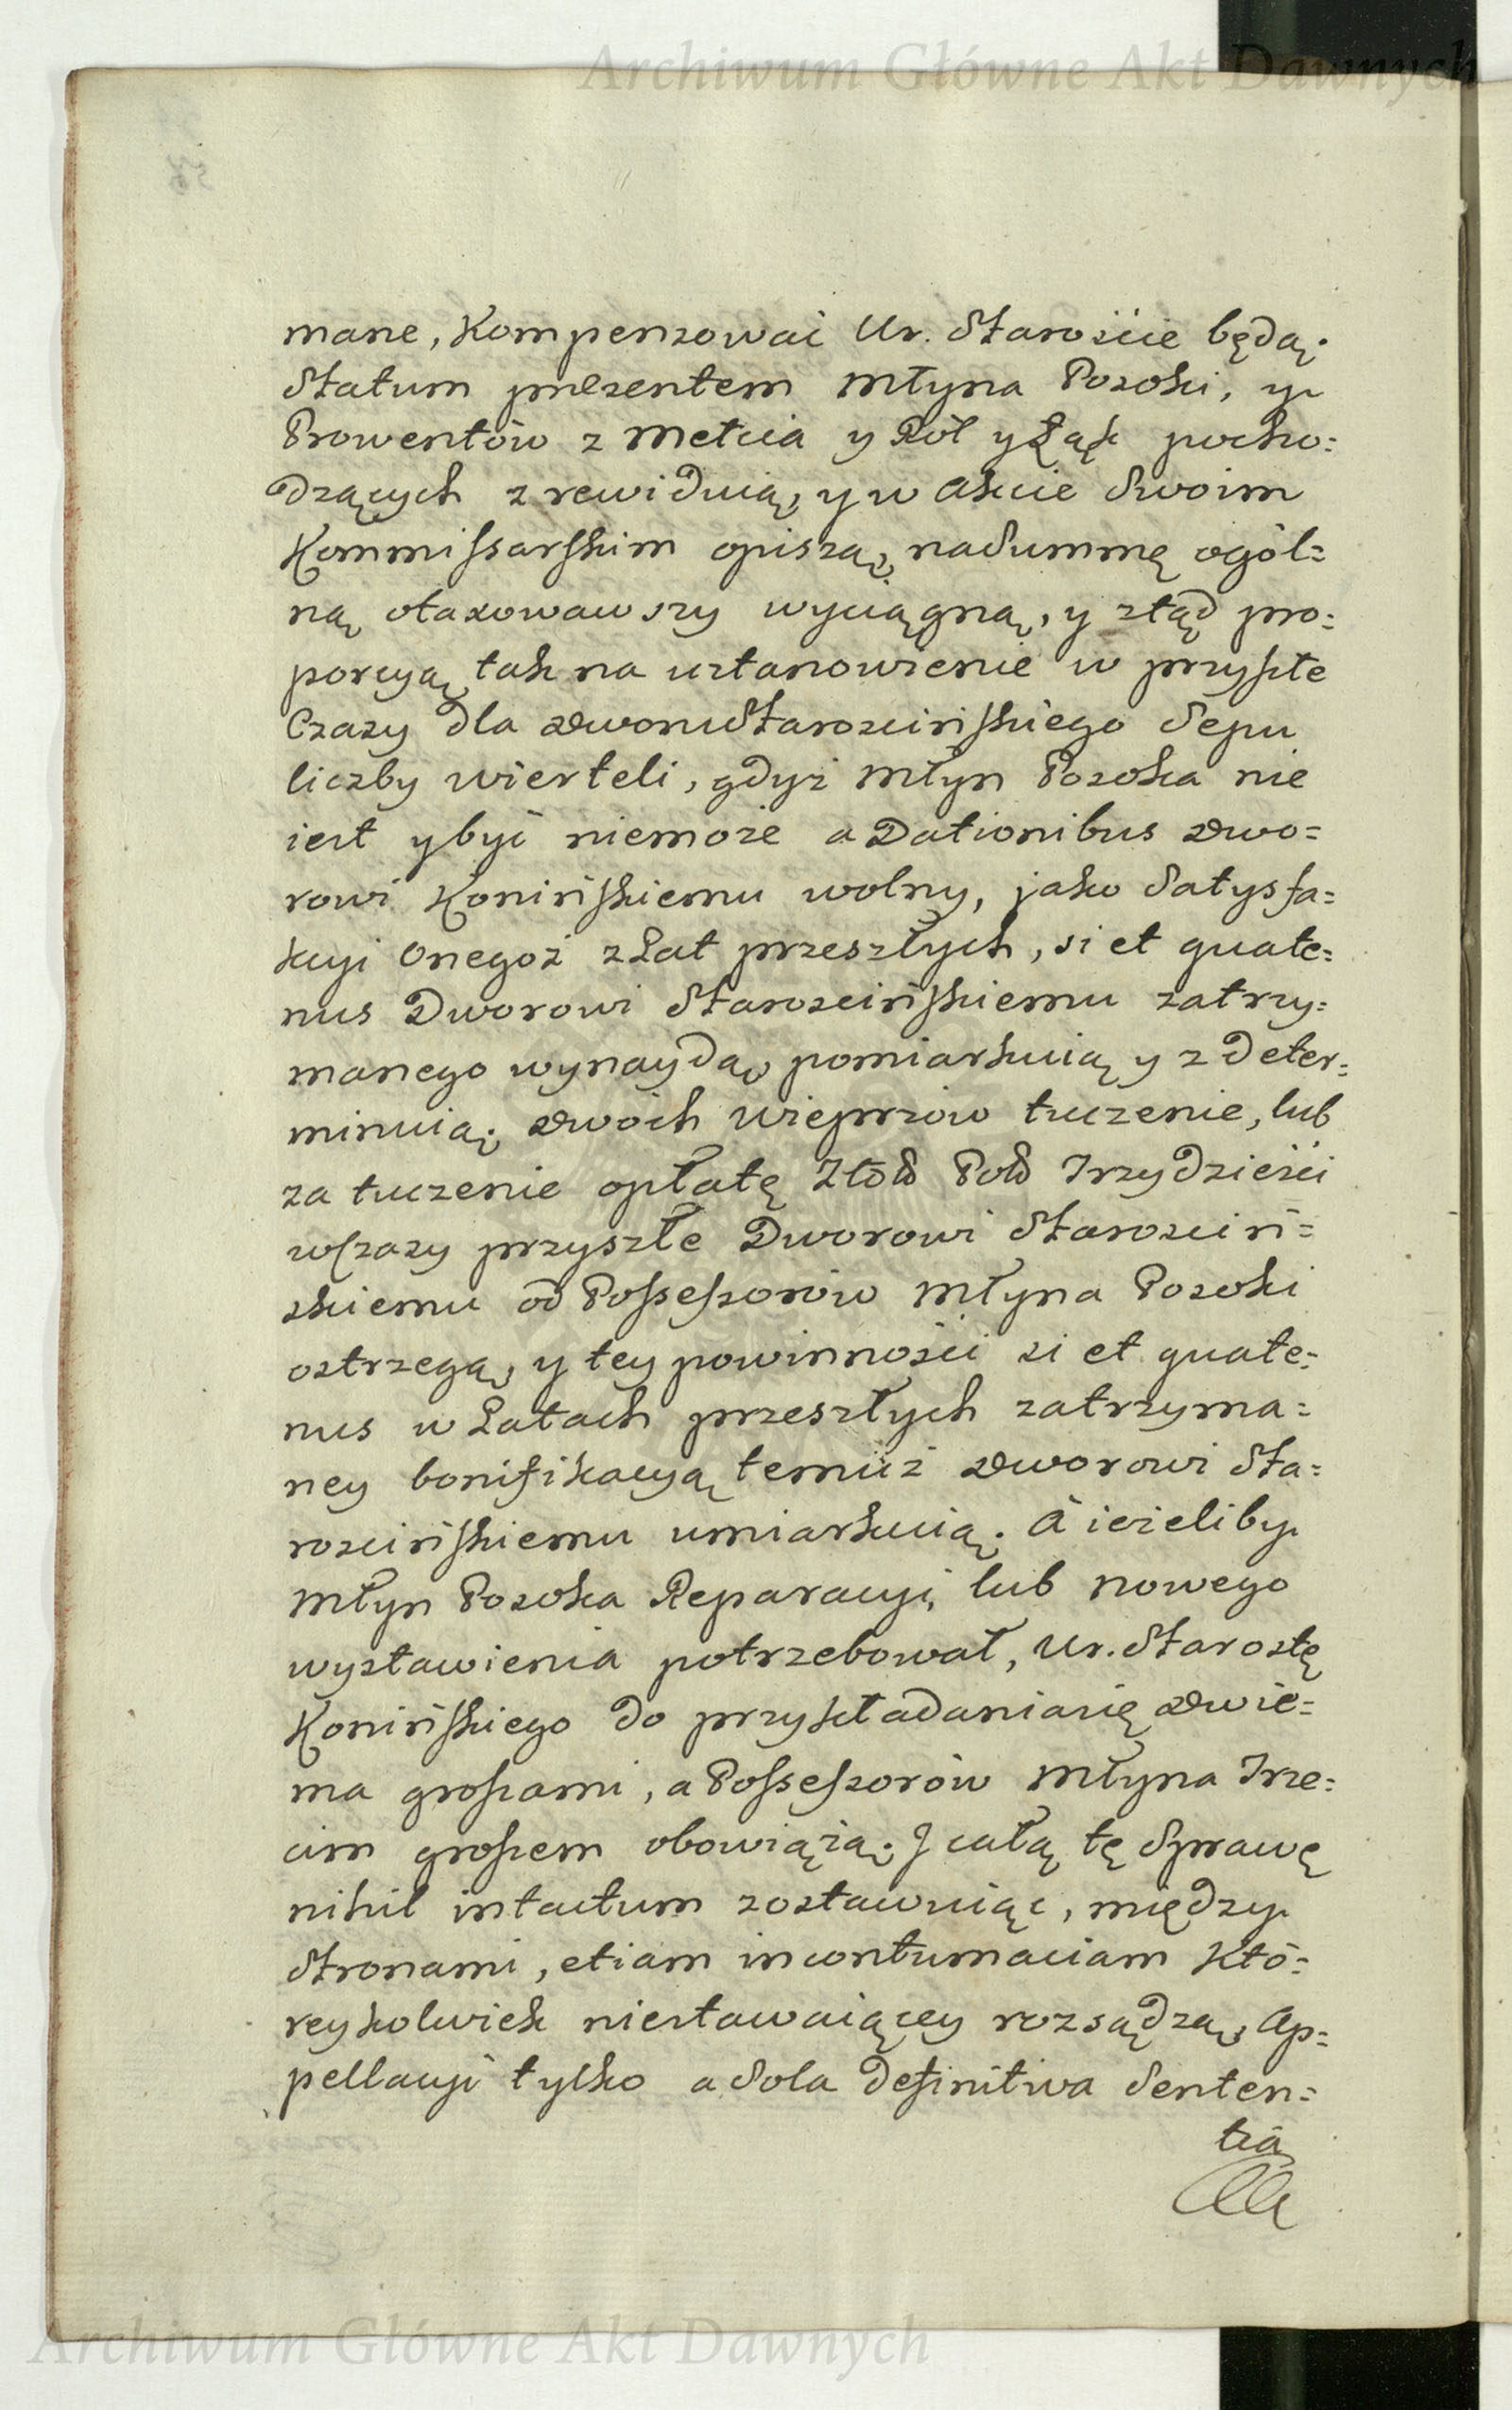 Archiwum Główne Akt Dawnych
mane, Kompensować Ur. Starościе będą.
Statum praesentem Młyna Posoki, y
Prowentów z Mełcia y Rół y Łąk pocho=
dzących zrewiduią, y w Akcie Swoim
Kommissarskim opiszą, na Summę ogól=
ną otaxowawszy wyciągną, y ztąd pro=
porcyą tak na ustanowienie w przyszłe
Czasy dla Dworu Starościńskiego Sepu
liczby wierteli, gdyż Młyn Posoka nie
iest y być niemoże a Dationibus Dwo=
rowi Konińskiemu wolny, jako Satysfa=
kcyi Onegoż z Lat przeszłych, si et quate=
nus Dworowi Starościńskiemu zatrzy=
manego wynaydą, pomiarkuią y zdeter=
minuią. Dwóch Wieprzów tuczenie, lub
za tuczenie opłatę Złotł Pol Trzydzieści
w Czasy przyszłe Dworowi Starościń=
skiemu od Possessorów Młyna Posoki
ostrzegą, y tey powinności si et quate=
nus w Latach przeszłych zatrzyma=
ney bonifikacyą temuż Dworowi Sta=
rościńskiemu umiarkuią. A ieżeliby
Młyn Posoka Reparacyi, lub nowego
wystawienia potrzebował, Ur. Starostę
Konińskiego do przykładania się dwie=
ma groszami, a Possessorów Młyna Trze=
cim groszem obowiążą. J całą tę Sprawę
nihil intactum zostawuiąc, między
Stronami, etiam in contumaciam Któ=
reykolwiek niestawaiącey rozsądzą, Ap=
pellacyi tylko a Sola Definitiva Senten=
tia
Archiwum Główne Akt Dawnych